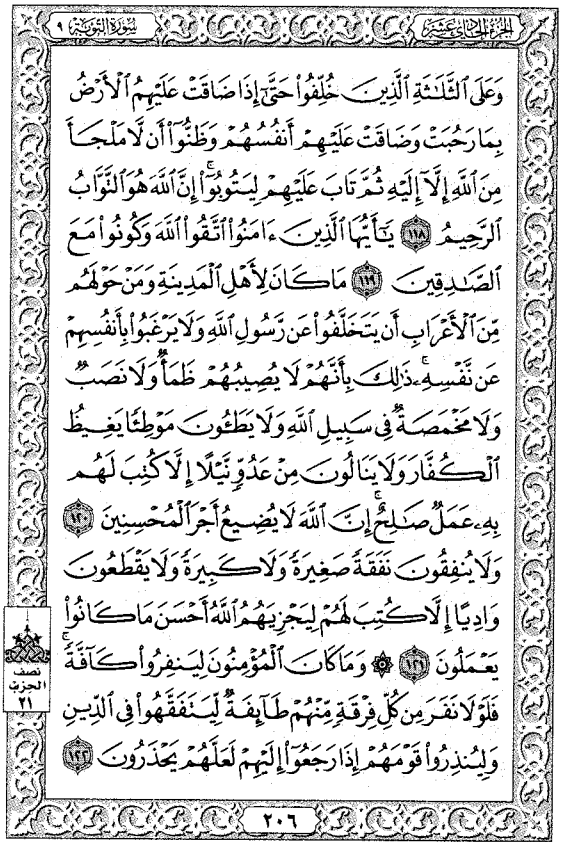 الجزء الحادي عشر
سورة التوبة ٩
وَعَلَى ٱلثَّلَـٰثَةِ ٱلَّذِينَ خُلِّفُوا۟ حَتَّىٰٓ إِذَا ضَاقَتْ عَلَيْهِمُ ٱلْأَرْضُ
بِمَا رَحُبَتْ وَضَاقَتْ عَلَيْهِمْ أَنفُسُهُمْ وَظَنُّوٓا۟ أَن لَّا مَلْجَأَ
مِنَ ٱللَّهِ إِلَّآ إِلَيْهِ ثُمَّ تَابَ عَلَيْهِمْ لِيَتُوبُوٓا۟ ۚ إِنَّ ٱللَّهَ هُوَ ٱلتَّوَّابُ
ٱلرَّحِيمُ ١١٨ يَـٰٓأَيُّهَا ٱلَّذِينَ ءَامَنُوا۟ ٱتَّقُوا۟ ٱللَّهَ وَكُونُوا۟ مَعَ
ٱلصَّـٰدِقِينَ ١١٩ مَا كَانَ لِأَهْلِ ٱلْمَدِينَةِ وَمَنْ حَوْلَهُم
مِّنَ ٱلْأَعْرَابِ أَن يَتَخَلَّفُوا۟ عَن رَّسُولِ ٱللَّهِ وَلَا يَرْغَبُوا۟ بِأَنفُسِهِمْ
عَن نَّفْسِهِۦ ۚ ذَٰلِكَ بِأَنَّهُمْ لَا يُصِيبُهُمْ ظَمَأٌ وَلَا نَصَبٌ
وَلَا مَخْمَصَةٌ فِى سَبِيلِ ٱللَّهِ وَلَا يَطَـُٔونَ مَوْطِئًا يَغِيظُ
ٱلْكُفَّارَ وَلَا يَنَالُونَ مِنْ عَدُوٍّ نَّيْلًا إِلَّا كُتِبَ لَهُم
بِهِۦ عَمَلٌ صَـٰلِحٌ ۚ إِنَّ ٱللَّهَ لَا يُضِيعُ أَجْرَ ٱلْمُحْسِنِينَ ١٢٠
وَلَا يُنفِقُونَ نَفَقَةً صَغِيرَةً وَلَا كَبِيرَةً وَلَا يَقْطَعُونَ
وَادِيًا إِلَّا كُتِبَ لَهُمْ لِيَجْزِيَهُمُ ٱللَّهُ أَحْسَنَ مَا كَانُوا۟
يَعْمَلُونَ ١٢١ ۞ وَمَا كَانَ ٱلْمُؤْمِنُونَ لِيَنفِرُوا۟ كَآفَّةً ۚ
فَلَوْلَا نَفَرَ مِن كُلِّ فِرْقَةٍ مِّنْهُمْ طَآئِفَةٌ لِّيَتَفَقَّهُوا۟ فِى ٱلدِّينِ
وَلِيُنذِرُوا۟ قَوْمَهُمْ إِذَا رَجَعُوٓا۟ إِلَيْهِمْ لَعَلَّهُمْ يَحْذَرُونَ ١٢٢
نصف
الحزب
٢١
٢٠٦